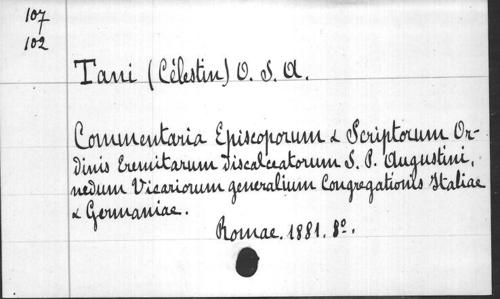 107
102
Tani (Célestin) O. S. A.
Commentaria Episcoporum & Scriptorum Or-
dinis Eremitarum Discalceatorum S. P. Augustini,
nedum Vicariorum generalium Congregationis Italiae
& Germaniae.
Romae. 1881. 8º.